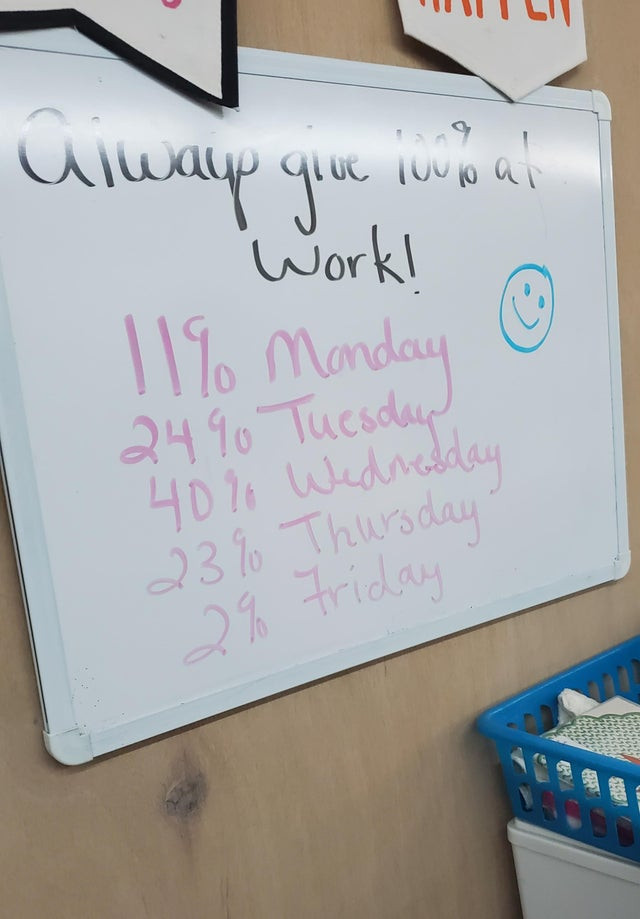 HAPPEN
Always give 100% at
Work!
11% Monday
24% Tuesday
40% Wednesday
23% Thursday
2% Friday